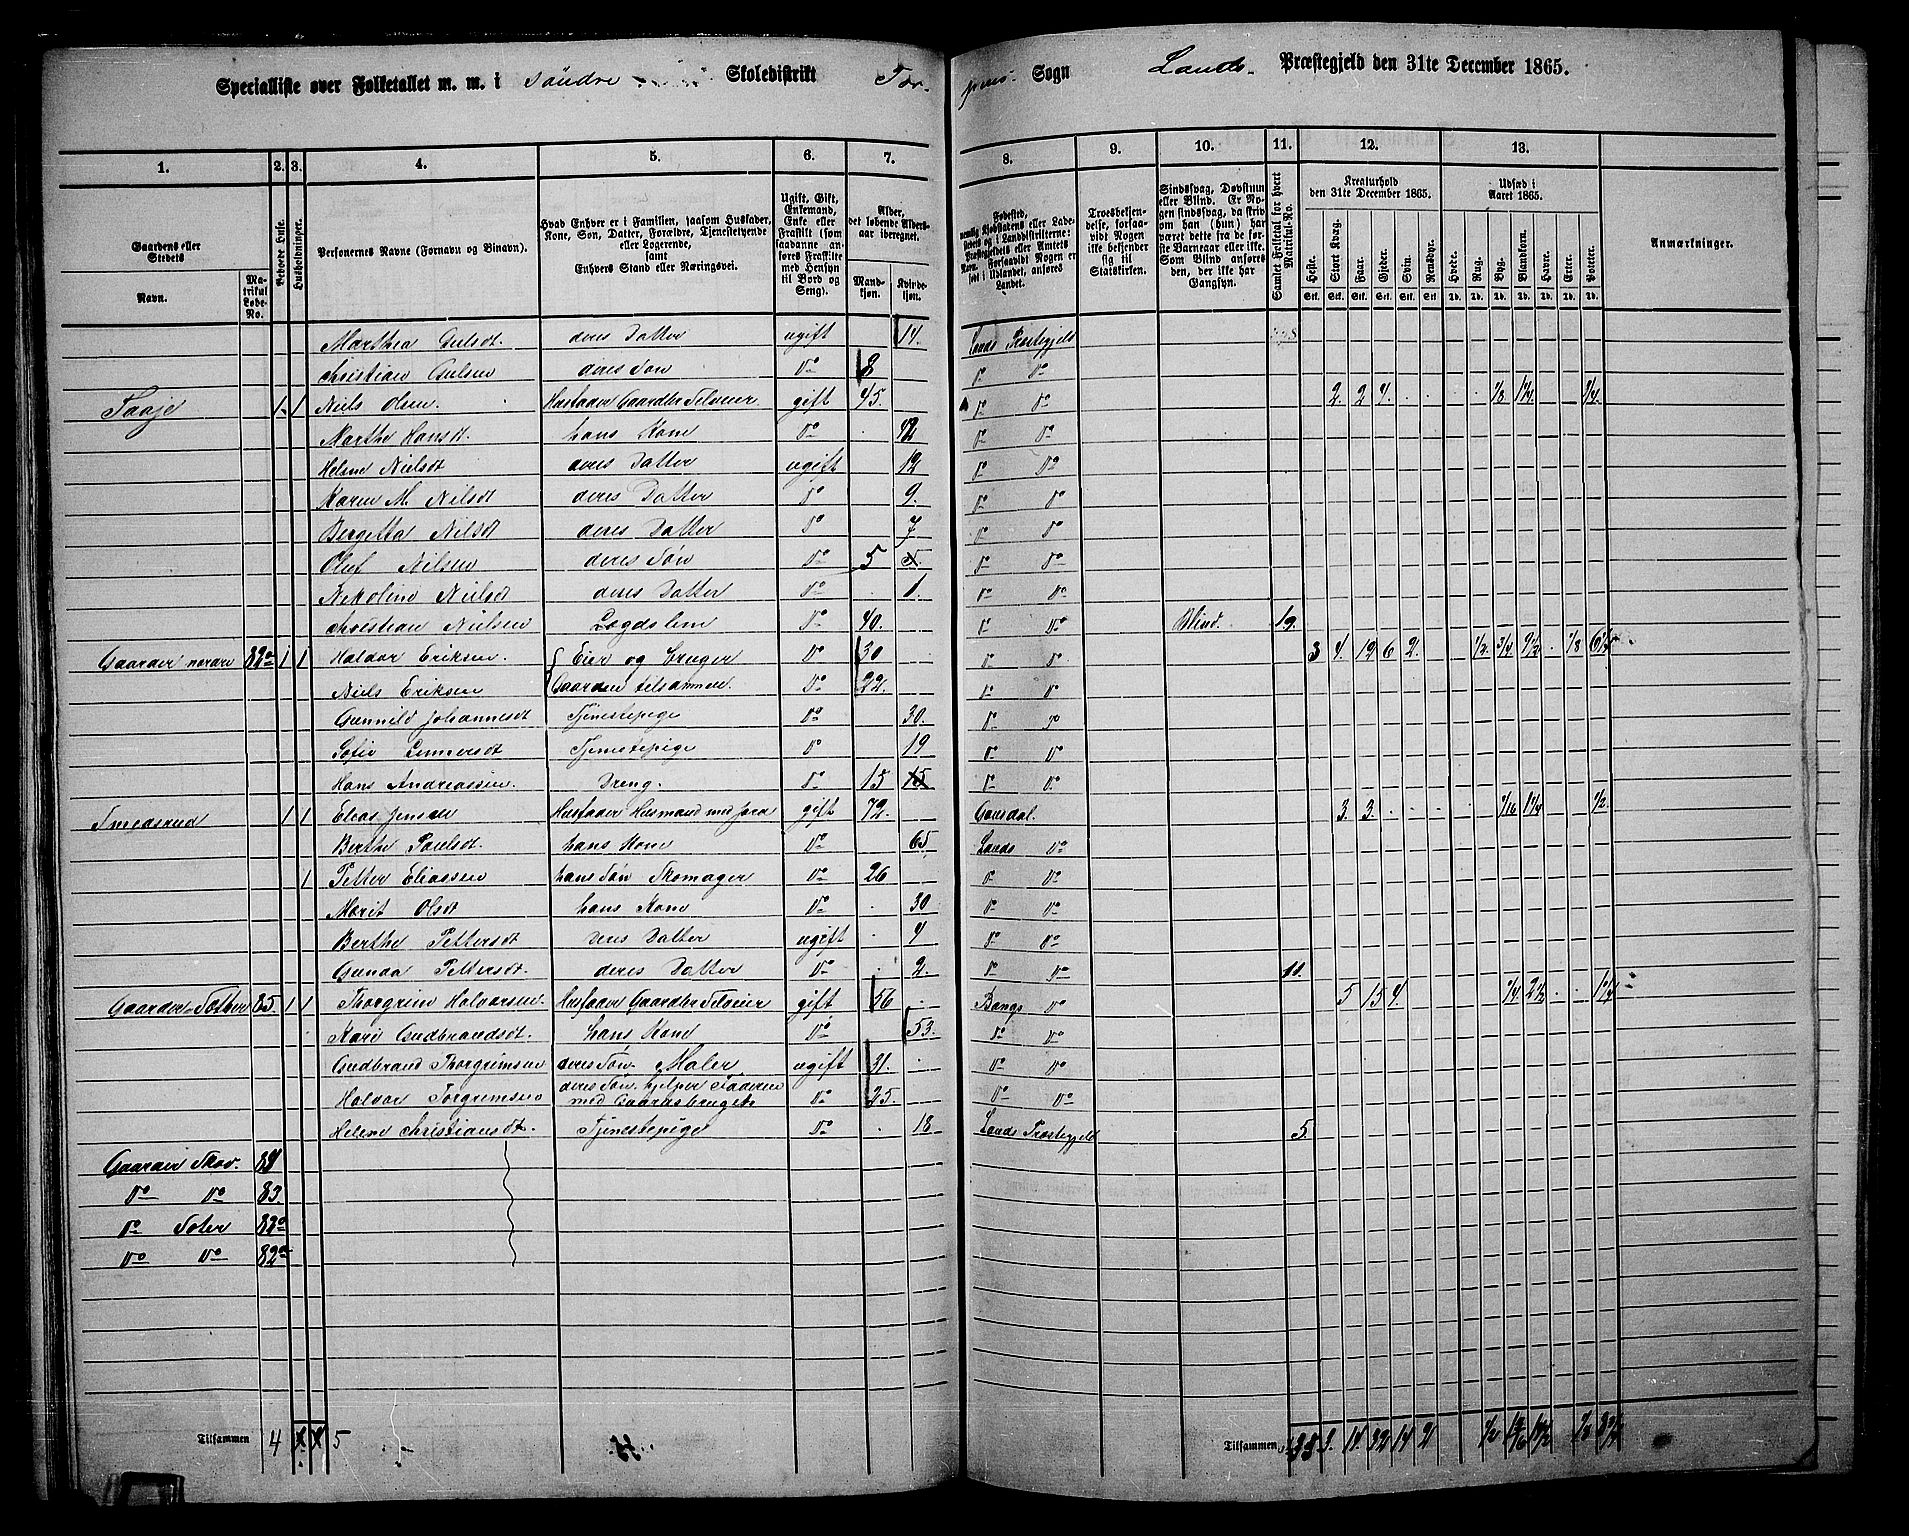 Specialliste over Folketallet m. m. i Søndre Skoledistrikt Tor-
pens Sogn Lands Præstegjeld den 31te December 1865.
1. 2. 3. 4. 5. 6. 7. 8. 9. 10. 11. 12. 13.
Gaardens eller Stedets Navn. Matrikul Løbe-No.
Beboede Huse.
Husholdninger.
Personernes Navne (Fornavn og Binavn).
Hvad Enhver er i Familien, saasom Husfader, Kone, Søn, Datter, Forældre, Tjenestetyende eller Logerende, samt Enhvers Stand eller Næringsvei.
Ugift, Gift, Enkemand, Enke eller Fraskilt (som saadanne anføres Fraskilte med Hensyn til Bord og Seng).
Alder, det løbende Aldersaar iberegnet. Mandkjøn. Kvindekjøn.
Fødested,
Troesbekjendelse, forsaavidt Nogen ikke bekjender sig til Statskirken.
Sindssvag, Døvstum eller Blind. Er Nogen sindssvag, da skriv om han (hun) har været dette fra de første Barneaar eller ikke. Som Blind anføres den, der ikke har Gangsyn.
Samlet Folketal for hvert Matrikul-No.
Kreaturhold den 31te December 1865. Heste. Stort Kvæg. Faar. Gjeder. Svin. Rensdyr.
Udsæd i Aaret 1865. Hvede. Rug. Byg. Blandkorn. Havre. Erter. Poteter.
Anmærkninger.
Marthea Gulsdt. deres Datter ugift 14. Lands Præstegjeld
Christian Gulsen deres Søn Do 8 Do Do
1 1 Niels Olsen. Husfader Gaardbr Selveier gift 45. Do Do 2 2 4 1/8 1 1/4 3/4
Marthe Hansdt. hans Kone Do 42 Do Do
Helene Nielsdt deres Datter ugift 12 Do Do
Karen M. Nilsdt deres Datter Do 9. Do Do
Bergetta Nilsdt deres Datter Do 7 Do Do
Oluf Nilsen deres Søn Do 5 Do Do
Nikoline Nielsdt deres Datter Do 1. Do Do
Christian Nielsen Lægdslem Do 40. Do Do Blind. 19.
Gaarder nordre 82a 1 1 Halvor Eriksen. Eier og bruger Do 30 Do Do 3 4. 12 6 2. 1/2 3/4 9 1/2 1/8 6 1/2
Niels Eriksen Gaarden tilsammen. Do 22. Do Do
Gunnild Johannesdt Tjenestepige Do 30. Do Do
Sofie Gunersdt Tjenestepige Do 19 Do Do
Hans Andreassen. Dreng. Do 15 Do Do
Smedsrud 1 1 Elias Jensen Husfader Husmand med Jord gift 72. Gausdal. 3. 3. 1/16 1 1/4 1/2
Berthe Paulsdt hans Kone Do 65 Lands Do
1 Petter Eliassen hans Søn Skomager Do 26 Do Do
Marit Olsdt hans Kone Do 30 Do Do
Berthe Pettersdt deres Datter ugift 4 Do Do
Gunda Pettersdt. deres Datter Do 2. Do Do 11.
Gaarder Sæther 85 1 1 Thorgrim Halvorsen. Husfader Gaardbr Selveier gift 56 Bangs Do 5 15 4. 1/4 2 1/2 1 1/4
Kari Gudbrandsdt. hans Kone Do 53. Do Do
Gudbrand Thorgrimsen deres Søn Maler ugift 31. Do Do
Halvor Torgrimsen deres Søn, hjelper Faderen med Gaardsbruget Do 25. Do Do
Helene Christiansdt. Tjenestepige Do 18 Lands Præstegjeld 5.
Gaarder Skov. 84
Do Do 83
Do 82
Do Do 82
Tilsammen 4 5
Tilsammen 35 3. 14 32 14 2